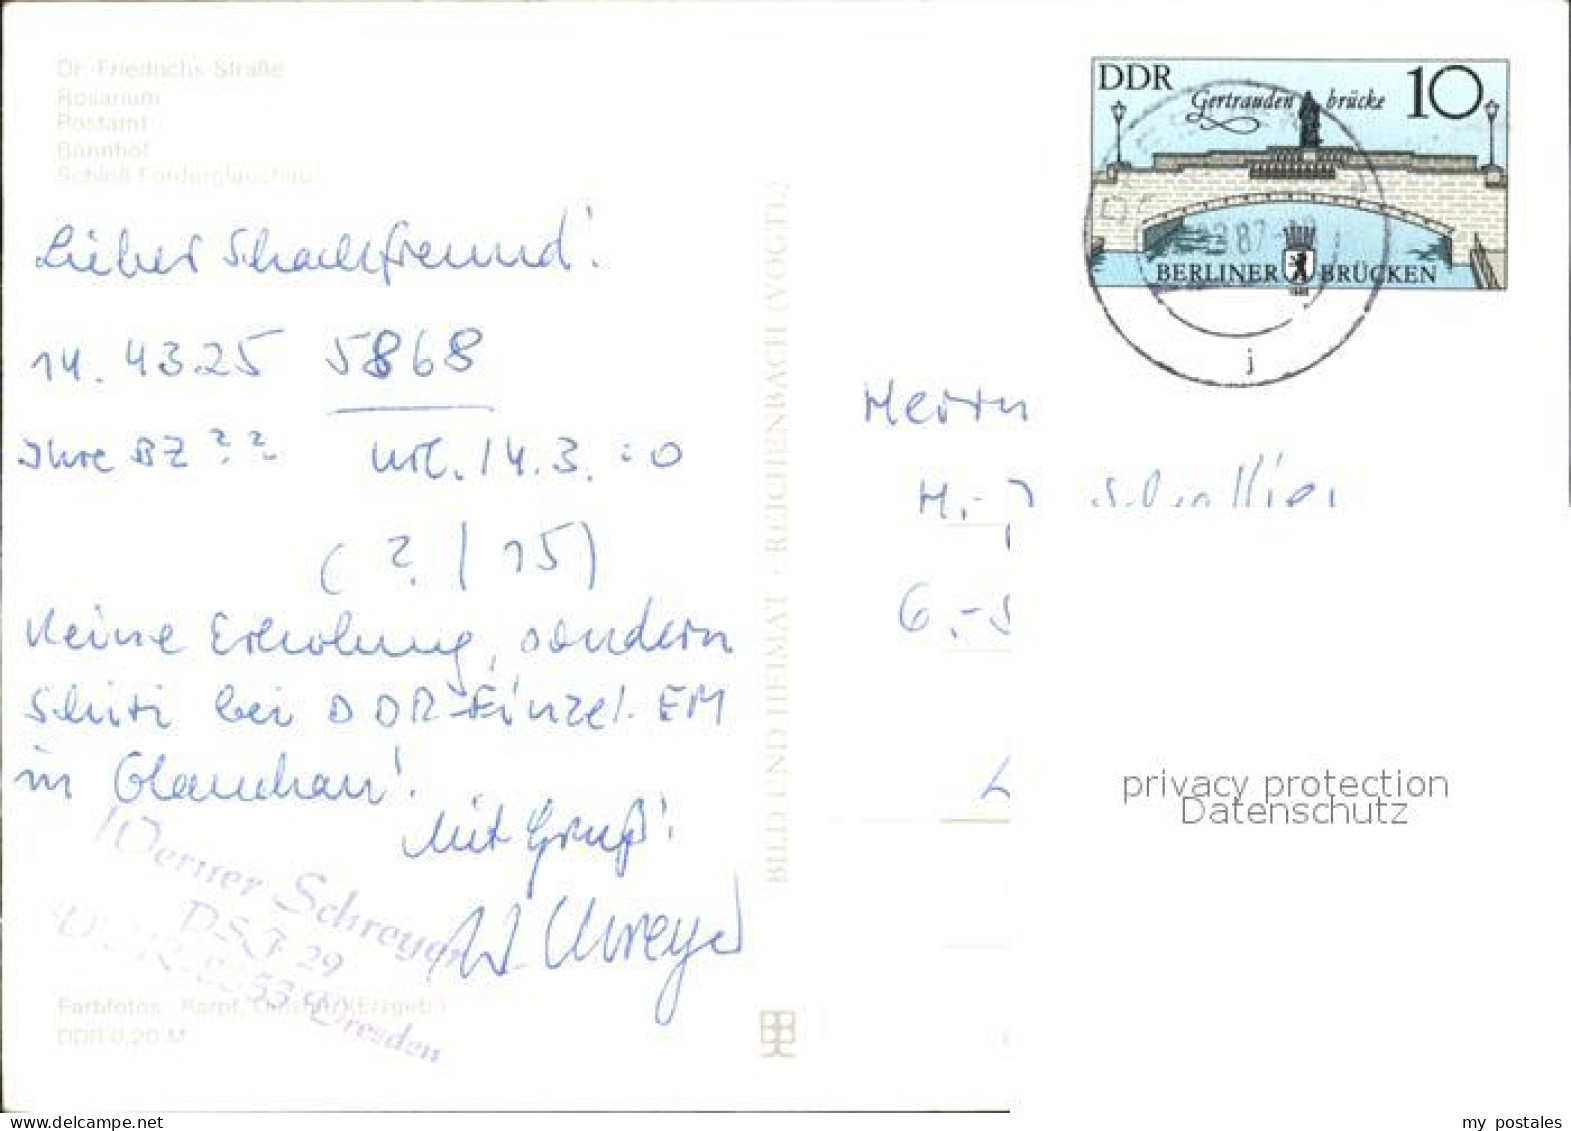 Dr.-Friedrichs-Straße
Rosarium
Postamt
Bahnhof
Schloß Forderglauchau
Lieber Schachfreund!
14. 4325 5868
Ihre BZ ?? Url. 14.3. = 0
( ? / 15)
Keine Erholung, sondern
Schiri bei DDR-Einzel-EM
in Glauchau!
Mit Gruß!
W. Schreyer
Werner Schreyer
DSF 29
53 Dresden
Farbfotos: (Erzgeb.)
DDR 0,20 M
BILD UND HEIMAT · REICHENBACH (VOGTL)
DDR Gertraudenbrücke 10
87
BERLINER BRÜCKEN
j
Herrn
H.-
6.-
L
privacy protection
Datenschutz
delcampe.net
my_postales